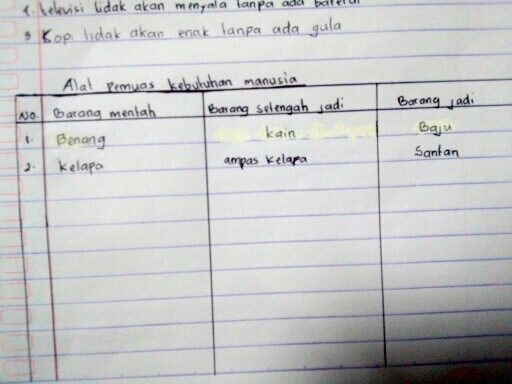 4. Televisi tidak akan menyala tanpa ada baterai
5 Kopi tidak akan enak tanpa ada gula
Alat pemuas kebutuhan manusia
No. Barang mentah Barang setengah jadi Barang jadi
1. Benang kain Baju
2. Kelapa ampas kelapa Santan